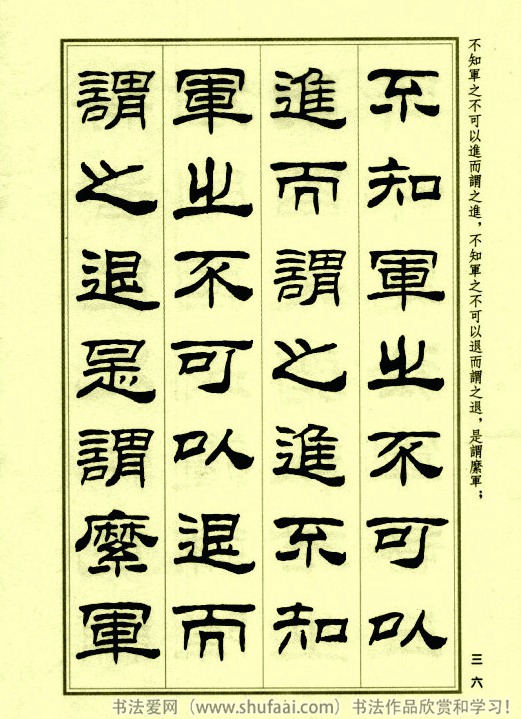 不知軍之不可以進而謂之進，不知軍之不可以退而謂之退，是謂縻軍；
不知軍之不可以
進而謂之進不知
軍之不可以退而
謂之退是謂縻軍
三六
书法爱网（www.shufaai.com）书法作品欣赏和学习！